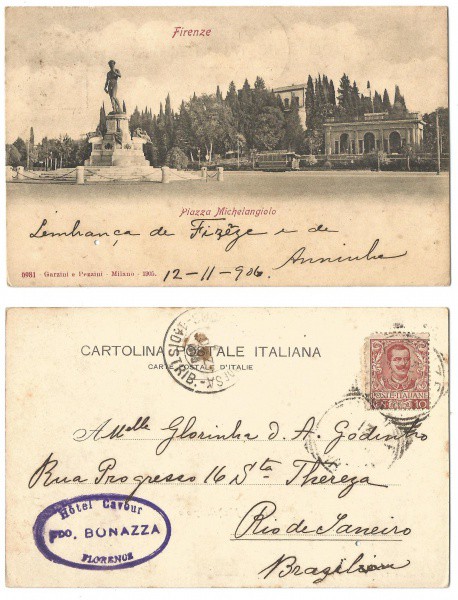 Firenze
Piazza Michelangiolo
Lembrança de Fizêze e de
Anninha
6981 - Garzini e Pezzini - Milano - 1905.
12-11-906.
CARTOLINA POSTALE ITALIANA
CARTE POSTALE D'ITALIE
DISTRIB.
POSTE ITALIANE
10
A Melle Glorinha d. A. Godinho
Rua Progresso 16 Sta Thereza
Rio de Janeiro
Brazilien
Hôtel Cavour
BONAZZA
FLORENCE